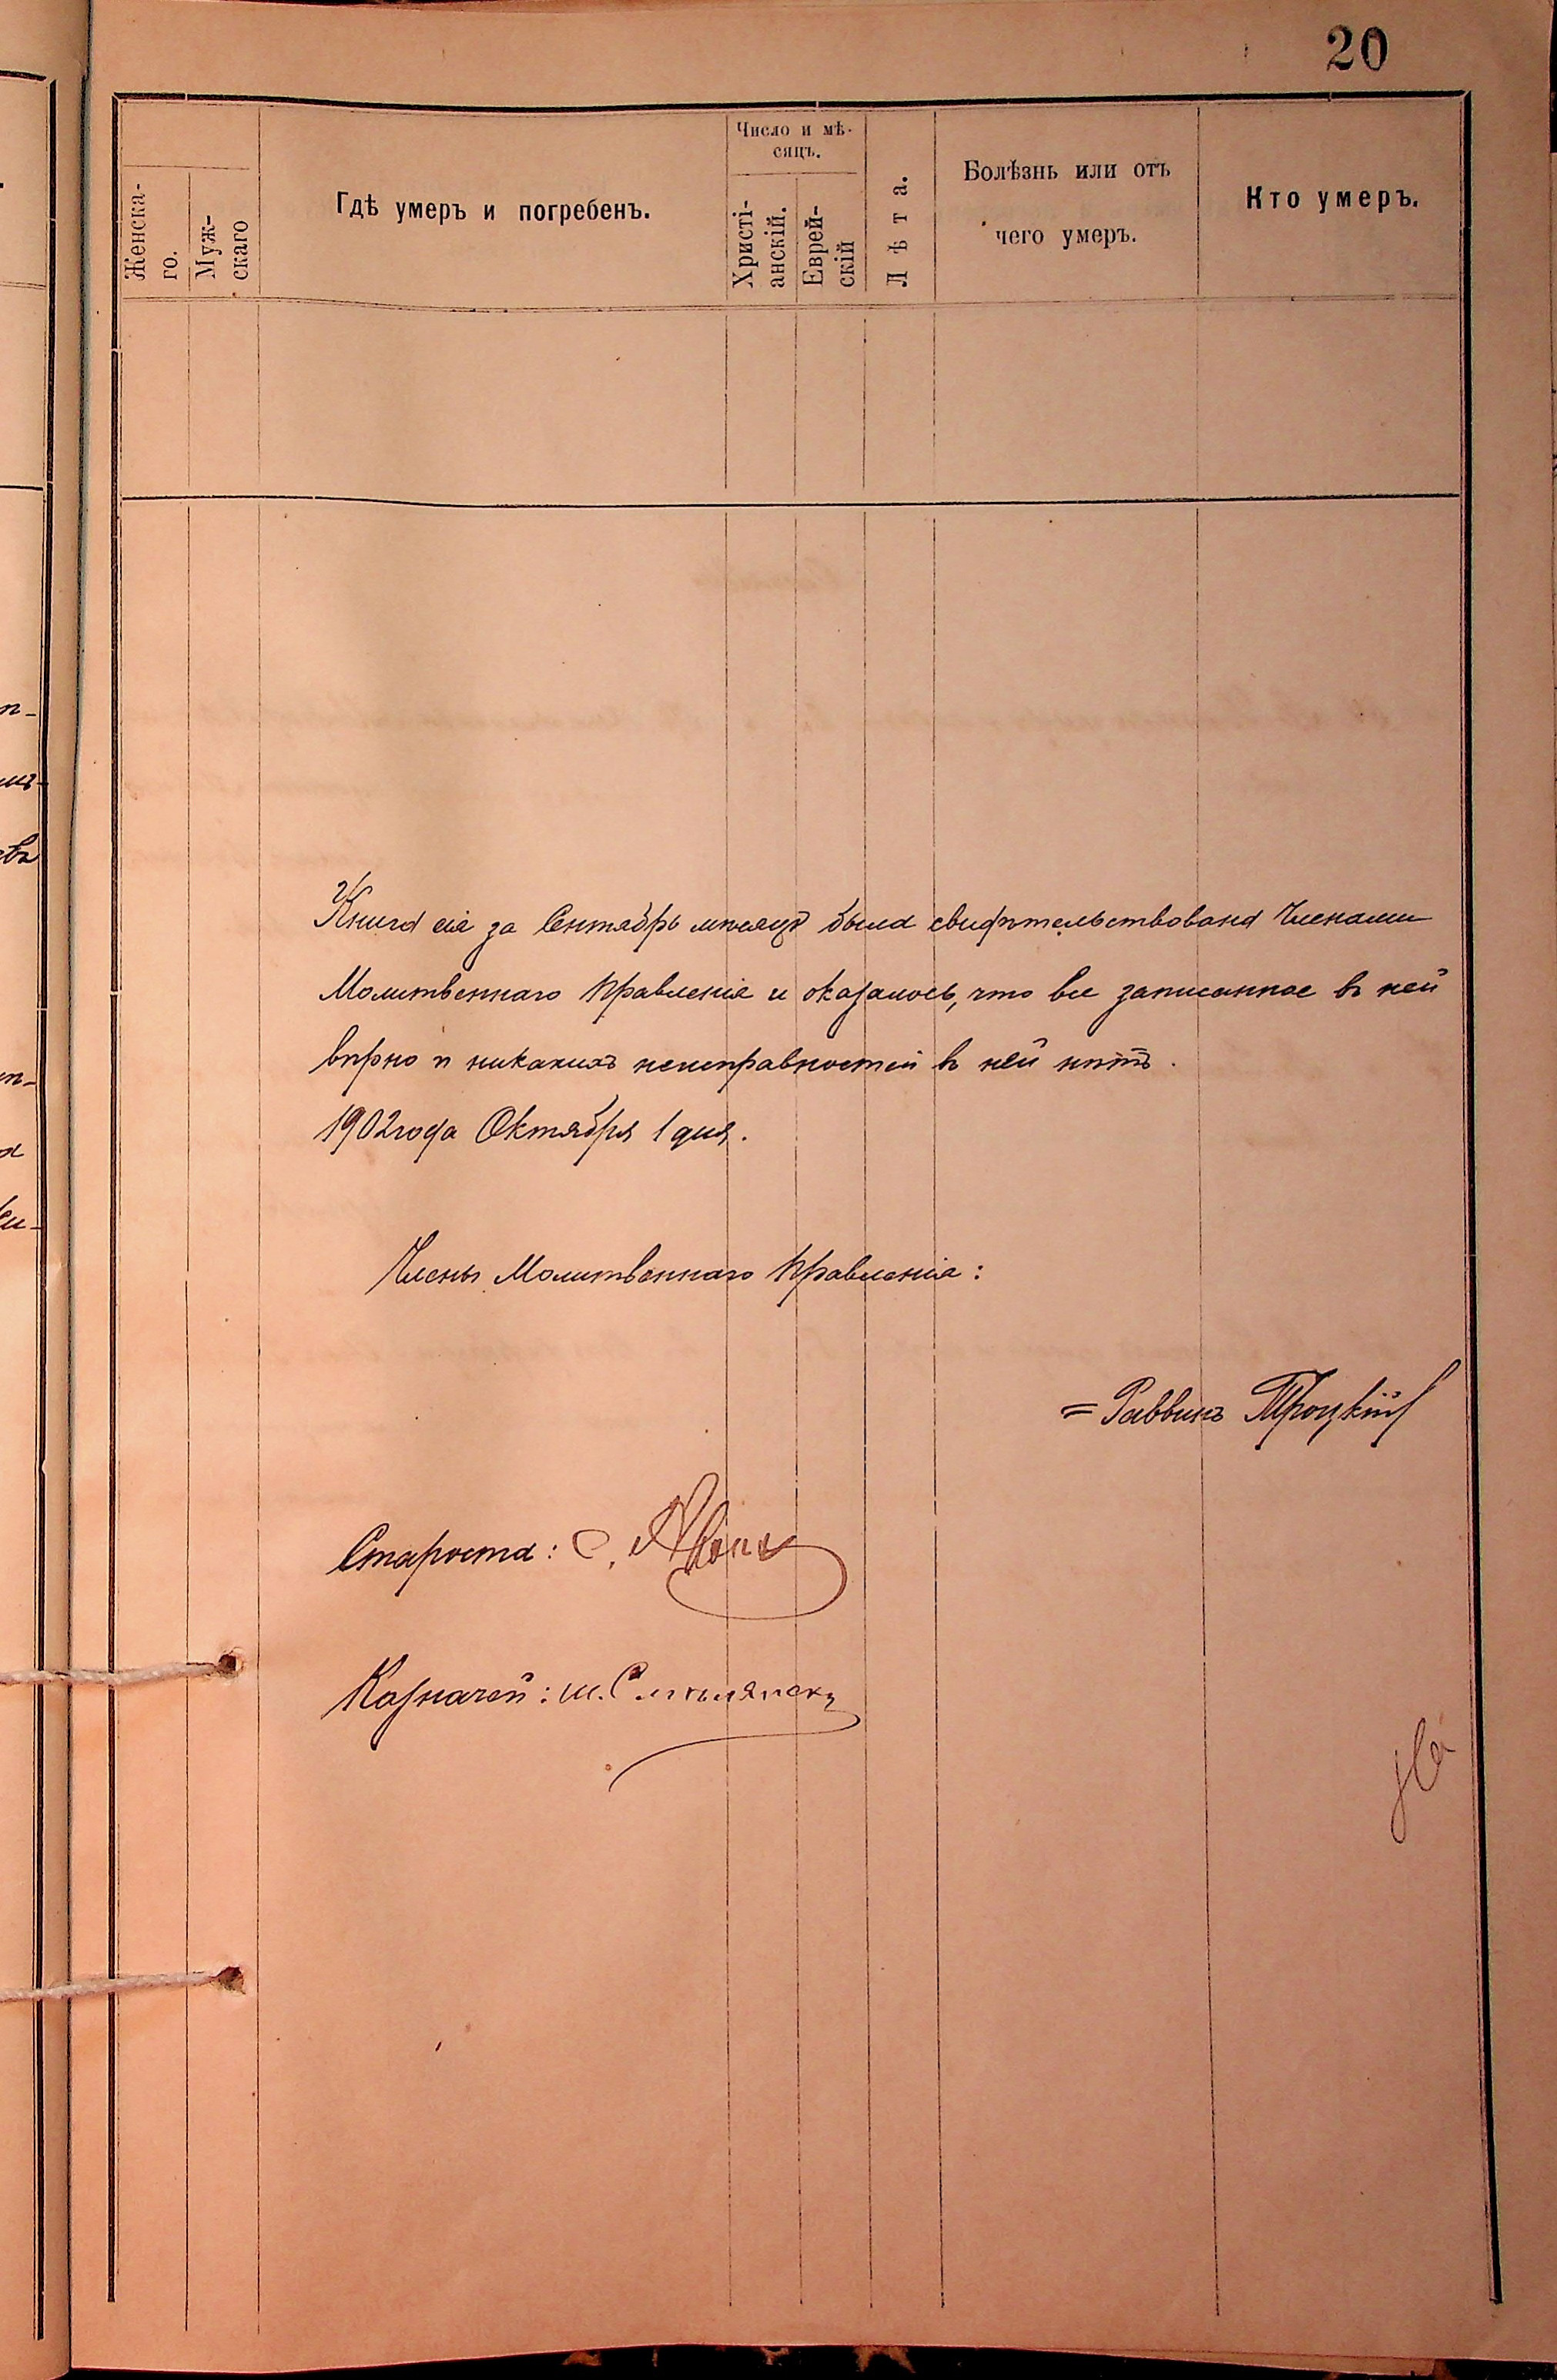 20
Женска-
го.
Муж-
скаго
Гдѣ умеръ и погребенъ.
Число и мѣ-
сяцъ.
Христі-
анскій.
Еврей-
скій
Лѣта.
Болѣзнь или отъ
чего умеръ.
Кто умеръ.
Книга сія за Сентябрь мѣсяцъ была свидѣтельствована Членами
Молитвеннаго Правленія и оказалось, что все записанное въ ней
вѣрно и никакихъ неисправностей въ ней нѣтъ.
1902 года Октября 1 дня.
Члены Молитвеннаго Правленія:
= Раввинъ Троцкій
Староста: С.
Казначей: Ш.